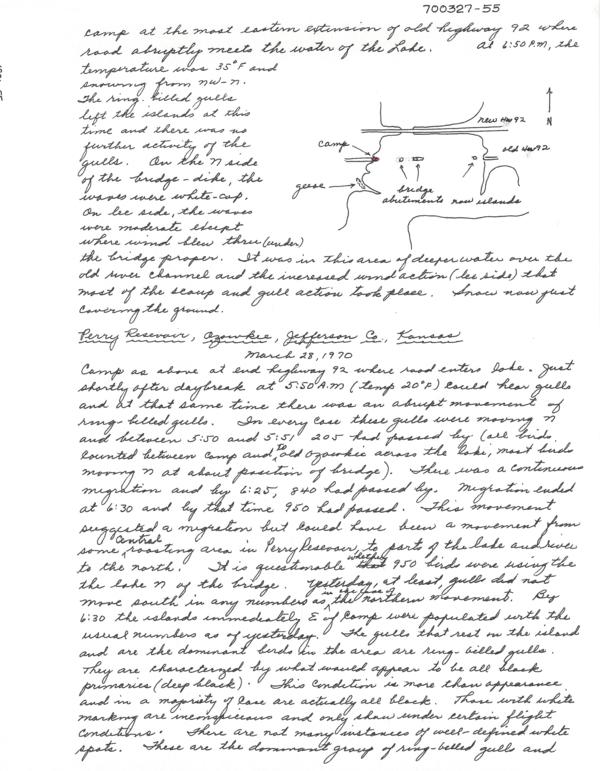 700327-55
camp at the most eastern extension of old highway 92 where
road abruptly meets the water of the Lake. At 6:50 P.M, the
temperature was 35°F and
snowing from NW-N.
The ring-billed gulls
left the islands at this
time and there was no
further activity of the
gulls. On the N side
of the bridge-dike, the
waves were white-cap.
On lee side, the waves
were moderate except
where wind blew thru (under)
new Hwy 92
N
camp
old Hwy 92
geese
bridge
abutements now islands
the bridge proper. It was in this area of deeper water over the
old river channel and the increased wind action (lee side) that
most of the scaup and gull action took place. Snow now just
covering the ground.
Perry Resevoir, Ozawkie, Jefferson Co., Kansas
March 28, 1970
Camp as above at end highway 92 where road enters lake. Just
shortly after daybreak at 5:50 A.M (temp 20°F) could hear gulls
and at that same time there was an abrupt movement of
ring-billed gulls. In every case these gulls were moving N
and between 5:50 and 5:51 205 had passed by (all birds
counted between camp and to old Ozawkie across the lake, most birds
moving N at about position of bridge). There was a continuous
migration and by 6:25, 840 had passed by. Migration ended
at 6:30 and by that time 950 had passed. This movement
suggested a migration but could have been a movement from
some central roosting area in Perry Resevoir, to parts of the lake and river
to the north. It is questionable whether 950 birds were using the
the lake N of the bridge. Yesterday, at least, gulls did not
move south in any numbers as in the case of the northern movement. By
6:30 the islands immediately E of camp were populated with the
usual numbers as of yesterday. The gulls that rest on the island
and are the dominant birds in the area are ring-billed gulls.
They are characterized by what would appear to be all black
primaries (deep black). This condition is more than appearance
and in a majority of case are actually all black. Those with white
marking are inconspicious and only show under certain flight
conditions. There are not many instances of well-defined white
spots. These are the dominant group of ring-billed gulls and